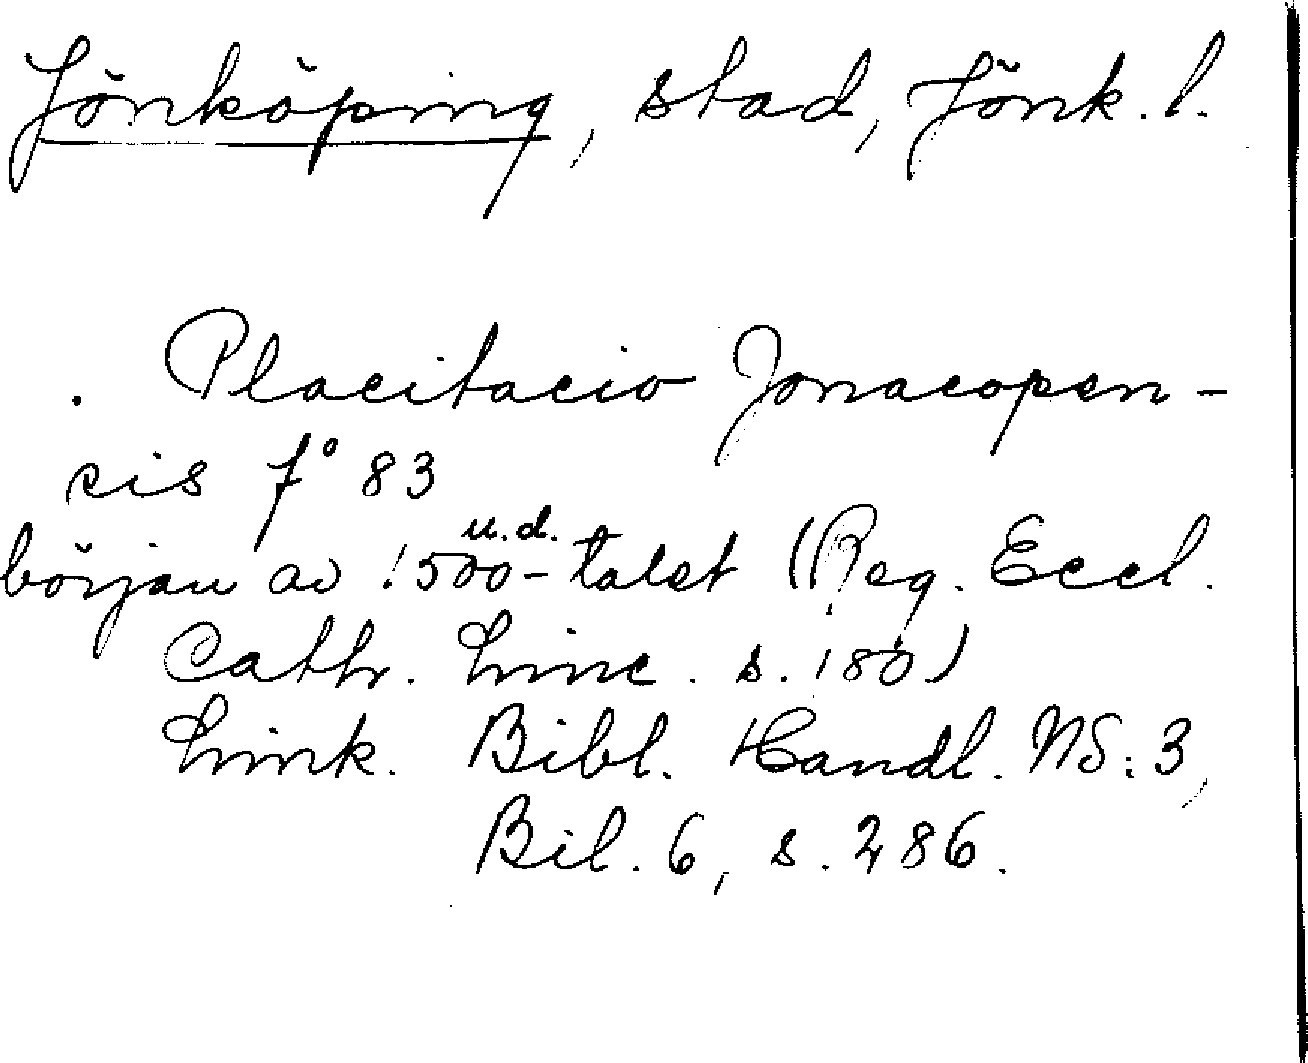 Jönköping, stad, Jönk. l.
. Placitacio Jonacopen-
sis fº 83
u.d.
början av 1500-talet (Reg. Eccl.
Cathr. Linc. s. 180)
Link. Bibl. Handl. NS: 3,
Bil. 6, s. 286.